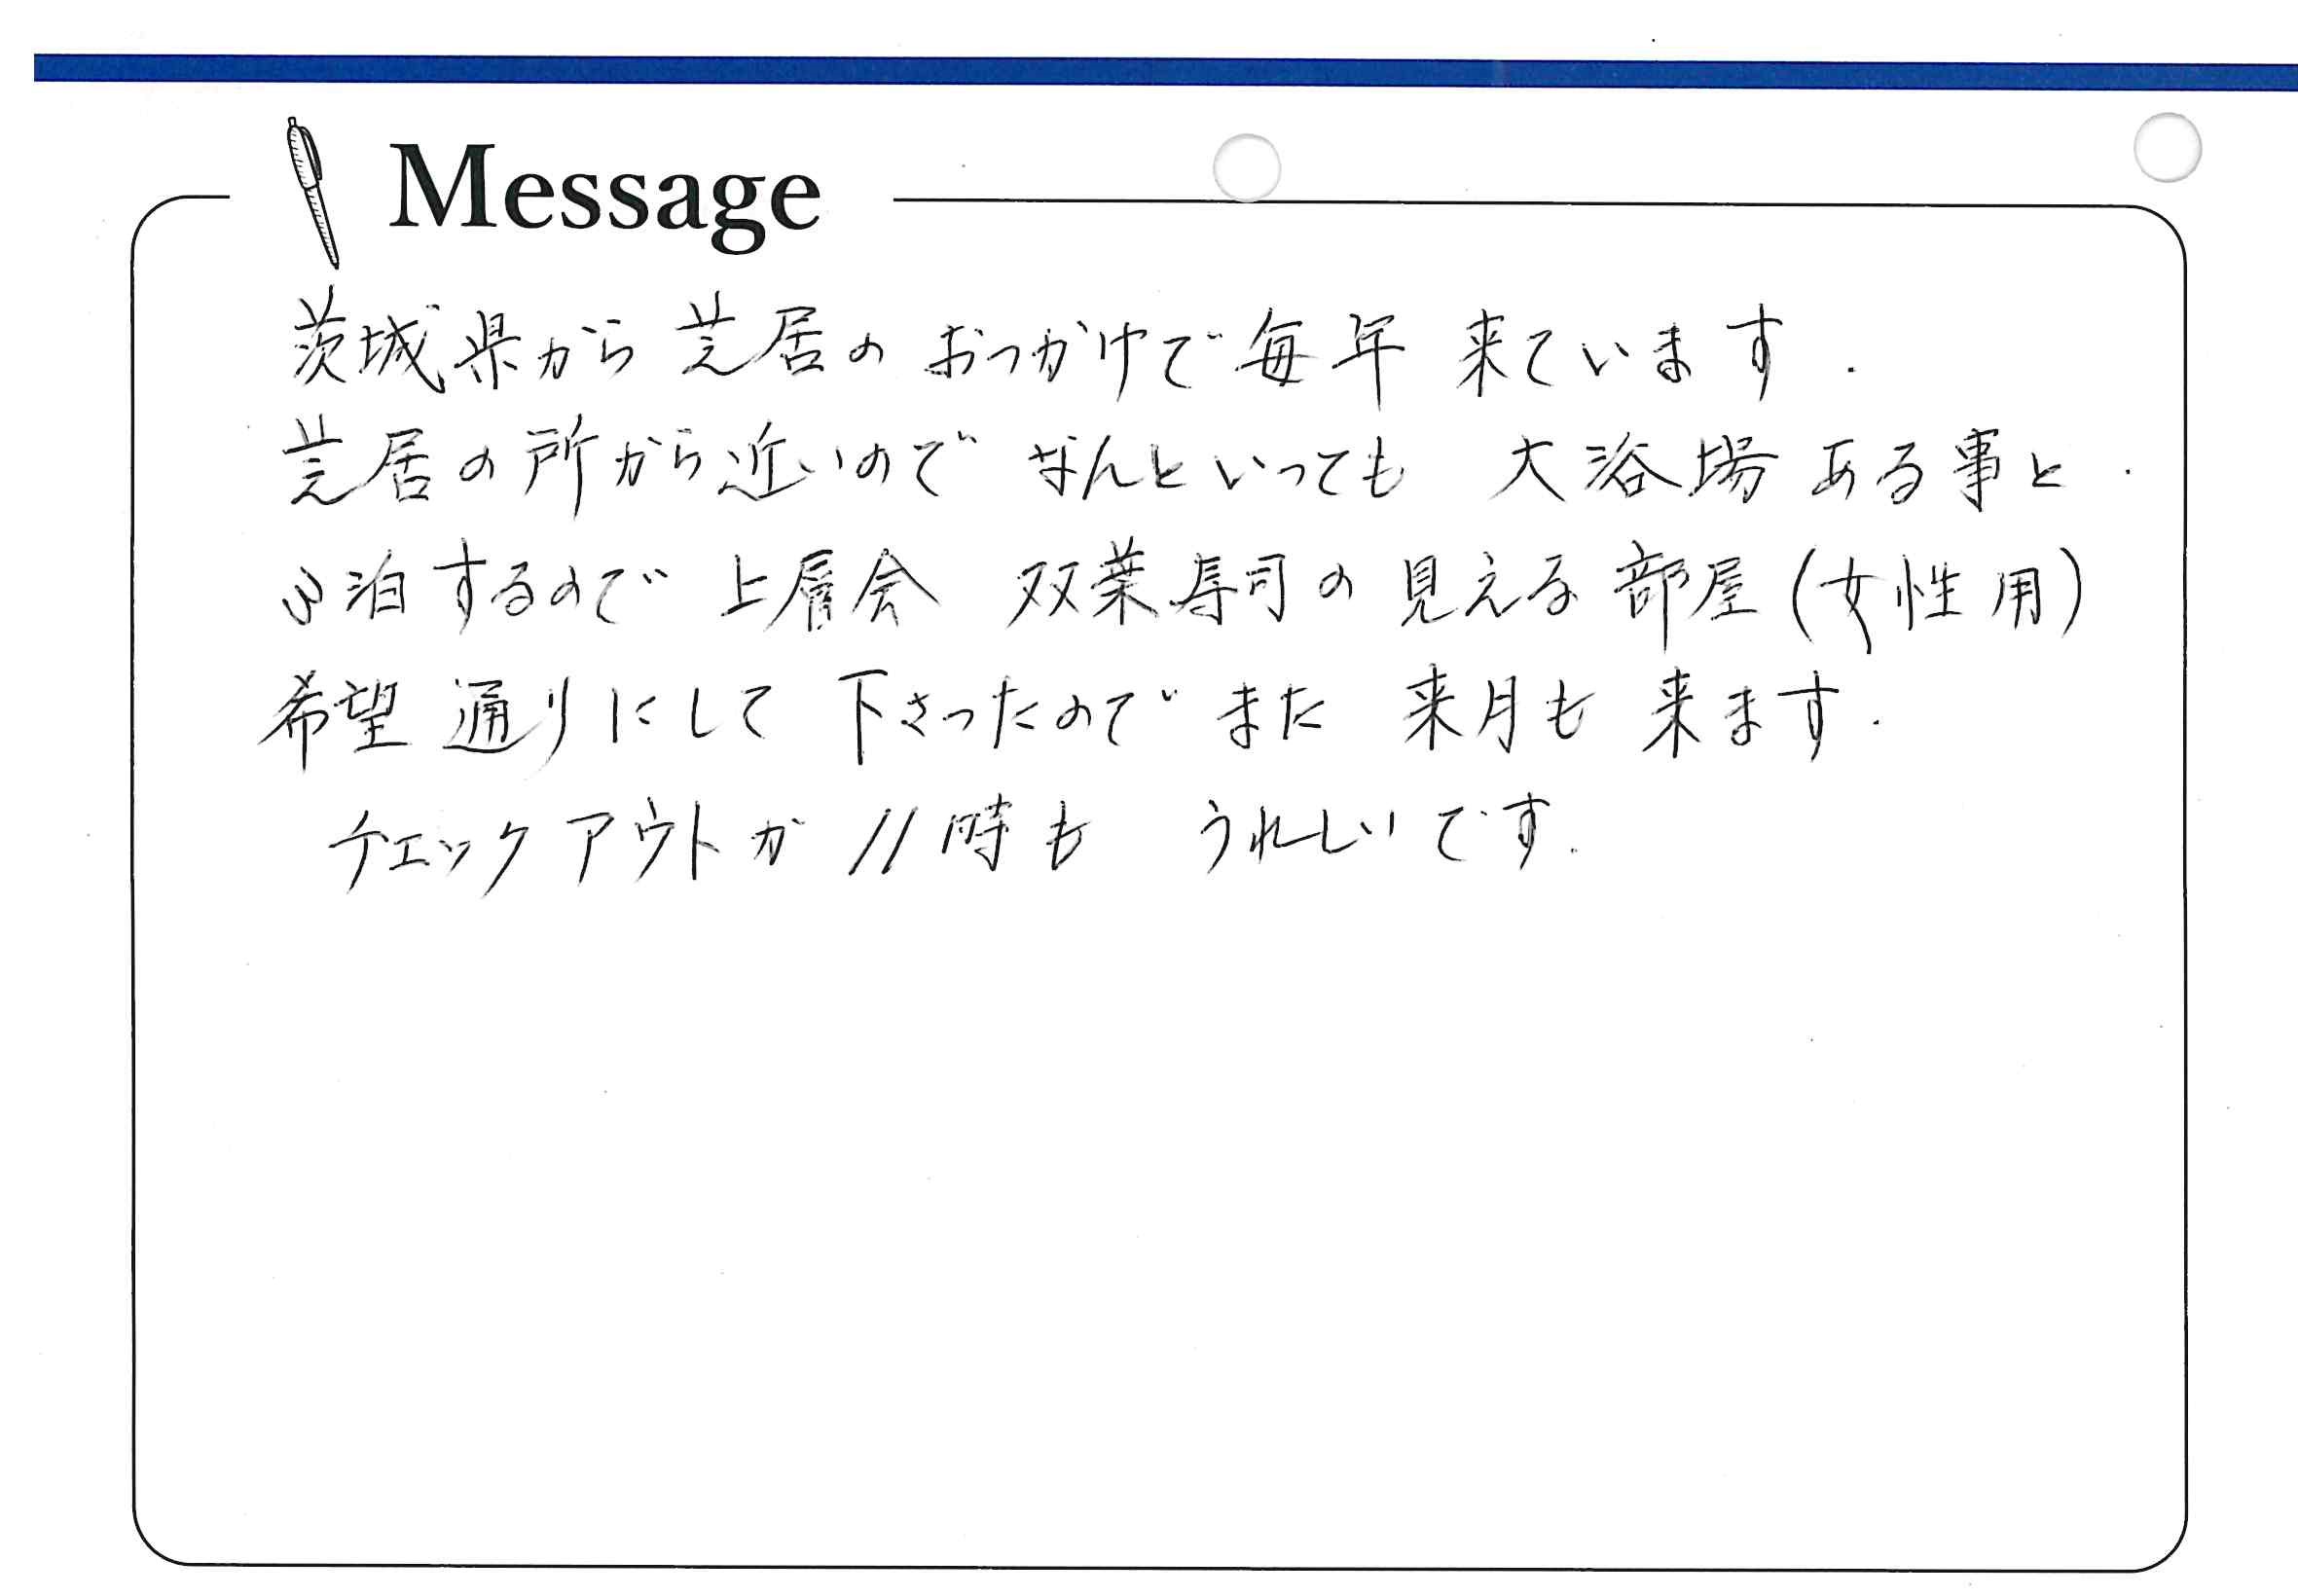 Message
茨城県から芝居のおっかけで毎年来ています.
芝居の所から近いのでなんといっても 大浴場ある事と
泊するので 上層会 双葉寿司の見える部屋(女性用)
希望通りにして下さったのでまた 来月も来ます.
チェックアウトが11時も うれしいです.